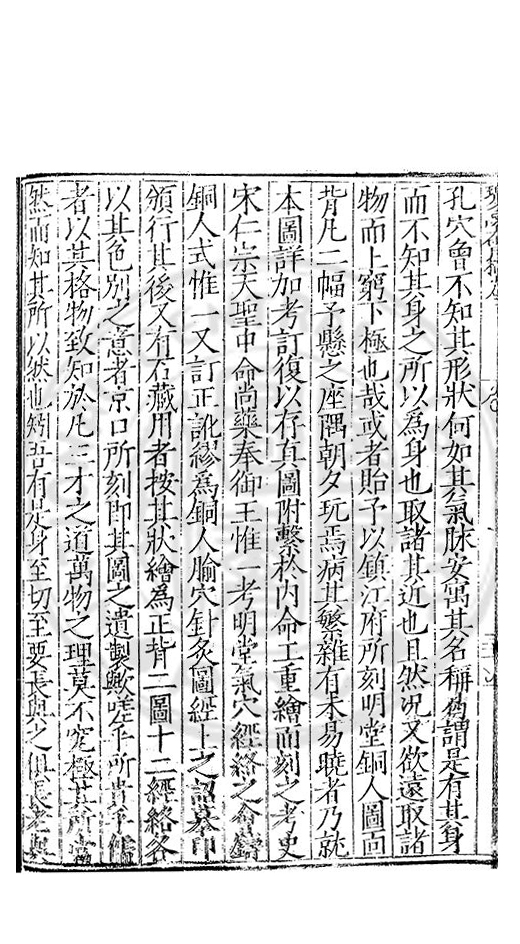 孔穴曾不知其形狀何如其氣脉安寓其名稱爲謂是有其身
而不知其身之所以爲身也取諸其近也且然况又欲遠取諸
物而上窮下極也哉或者貽予以鎮江府所刻明堂銅人圖面
背凡二幅予懸之座隅朝夕玩焉病其繁雜有未易曉者乃就
本圖詳加考訂復以存真圖附繫於内命工重繪而刻之考史
宋仁宗天聖中命尚藥奉御王惟一考明堂氣穴經絡之會鑄
銅人式惟一又訂正訛繆爲銅人腧穴針灸圖經上之詔摹印
頒行其後又有石藏用者按其狀繪爲正背二圖十二經絡各
以其色別之意者京口所刻即其圖之遺製歟嗟乎所貴乎儒
者以其格物致知於凡三才之道萬物之理莫不究極其所當
然而知其所以然也矧吾有是身至切至要長與之俱長老與